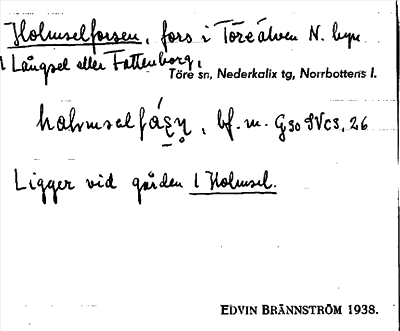 Holmselforsen, fors i Töreälven N. byn
1 Långsel eller Fattenborg,
Töre sn, Nederkalix tg, Norrbottens l.
bf. m. Gso IV c 3, 26
Ligger vid gården 1 Holmsel.
EDVIN BRÄNNSTRÖM 1938.